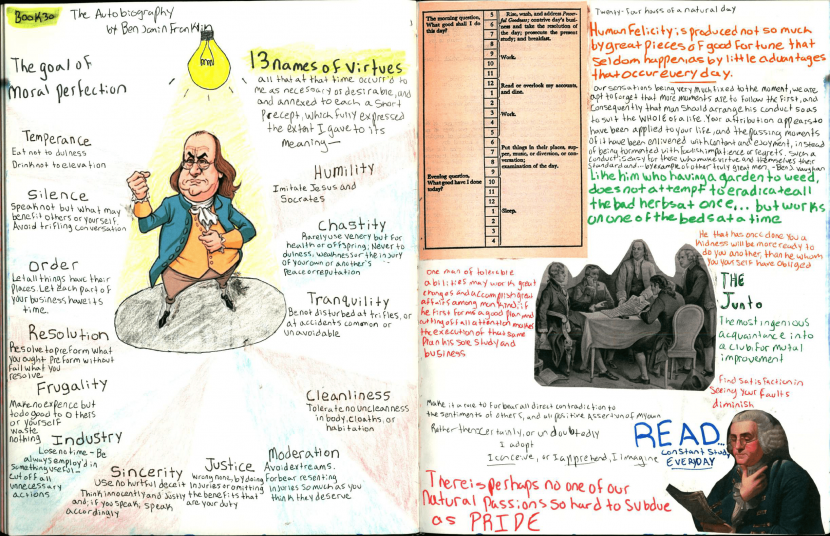 BOOK 30
The Autobiography
by Ben Jamin Franklin
The goal of
moral perfection
13 names of Virtues
all that at that time occurr'd to
me as necessary or desirable, and
and annexed to each a short
Precept, which fully expressed
the extent I gave to its
meaning—
Temperance
Eat not to dulness
Drink not to elevation
Silence
Speak not but what may
benefit others or yourself.
Avoid trifling conversation
Order
Let all things have their
Places. Let each part of
your business have its
time.
Resolution
Resolve to preform what
you ought. Preform without
fail what you
resolve
Frugality
Make no expence but
to do good to others
or yourself
waste
nothing
Industry
Lose no time - Be
always employ'd in
something useful -
cut off all
unnecessary
actions
Sincerity
Use no hurtful deceit
Think innocently and Justly
and, if you speak, speak
accordingly
Justice
Wrong none, by doing
injuries or omitting
the benefits that
are your duty
Moderation
Avoid extreams.
Forbear resenting
injuries so much as you
think they deserve
Cleanliness
Tolerate no uncleanness
in body, cloaths, or
habitation
Tranquility
Be not disturbed at trifles, or
at accidents common or
unavoidable
Chastity
Rarely use venery but for
health or offspring; Never to
dulness, weakness or the injury
of your own or another's
Peace or reputation
Humility
Imitate Jesus and
Socrates
The morning question,
What good shall I do
this day?
5
6
7
8
Rise, wash, and address Power-
ful Goodness; contrive day's busi-
ness and take the resolution of
the day; prosecute the present
study; and breakfast.
9
10
11
Work.
12
1
Read or overlook my accounts,
and dine.
2
3
4
5
Work.
6
7
8
9
Put things in their places, sup-
per, music, or diversion, or con-
versation;
examination of the day.
Evening question,
What good have I done
today?
10
11
12
1
2
3
4
Sleep.
Twenty-four hours of a natural day
Human Felicity is produced not so much
by great pieces of good fortune that
seldom happen as by little advantages
that occur every day.
our sensations being very much fixed to the moment, we are
apt to forget that more moments are to follow the first, and
Consequently that man should arrange his conduct so as
to suit the WHOLE of a life. Your attribution appears to
have been applied to your life, and the passing moments
of it have been enlivened with content and enjoyment, instead
of being tormented with foolish impatience or regrets. Such a
conduct is easy for those who make virtue and themselves their
Standard... by example of other truly great men. - Ben J. Vaughan
Like him who having a garden to weed,
does not attempt to eradicate all
the bad herbs at once... but works
on one of the beds at a time
He that has once done you a
Kindness will be more ready to
do you another, than he whom
you yourself have obliged
one man of tolerable
abilities may work great
changes and accomplish great
affairs among mankind, if
he first forms a good plan and
cutting off all attention makes
the execution of that same
Plan his sole study and
business
THE
Junto
The most ingenious
acquaintance into
a club for mutal
improvement
Find satisfaction in
Seeing your faults
diminish
Make it a rule to forbear all direct contradiction to
the sentiments of others, and all positive assertion of my own
Rather then certainly, or undoubtedly
I adopt
I conceive, or I apprehend, I imagine
READ...
Constant Study
EVERYDAY
There is perhaps no one of our
Natural Passions so hard to subdue
as PRIDE